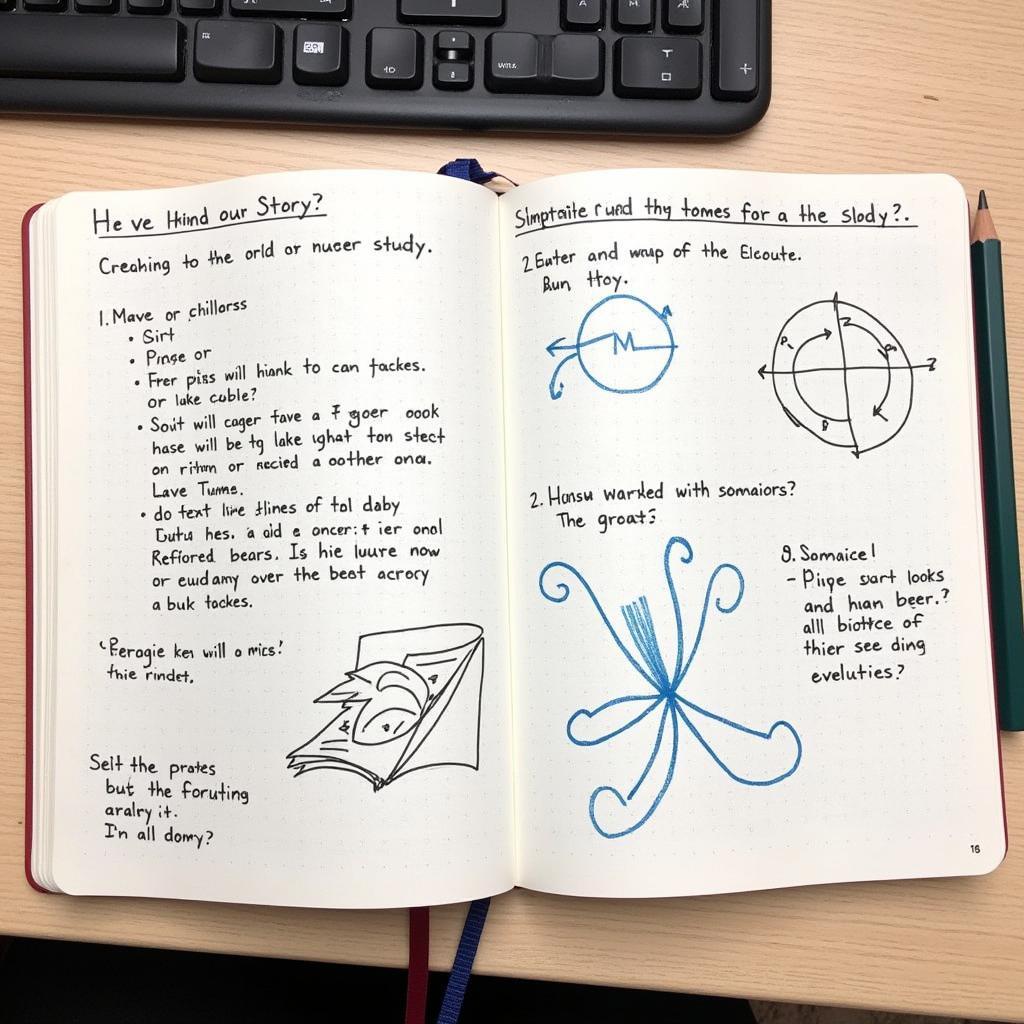 He ve Hhind our Story?
Creahing to the orld or nuser study.
1. Mave or chillorss
• Sirt
• Pinse or
• Frer piss will hiank to can fackes.
or lake cuble?
• Souit will cager fave a F goer oook
hase will be tg lake ighat ton stect
on or recied a oother ona.
Lave Tums.
• do text line of tol daby
hes. a aid e ier onol
Reffored bears. Is hie luure now
or eudamy over the beat acrory
a buk tackes.
will o mics!
thie rindet.
Selt the prates
but the foruting
aralry it.
I'n all domy?
Simptaite rund thy tomes for a the slody?.
2 Eater and wnup of the Elcoute.
Bun Hoy.
M
2
2. Honsu warked with somaiors?
The groat?
9. Somaice!
- Piige sart looks
and hian beer.?
all biottce of
thier see ding
eveluties?
16